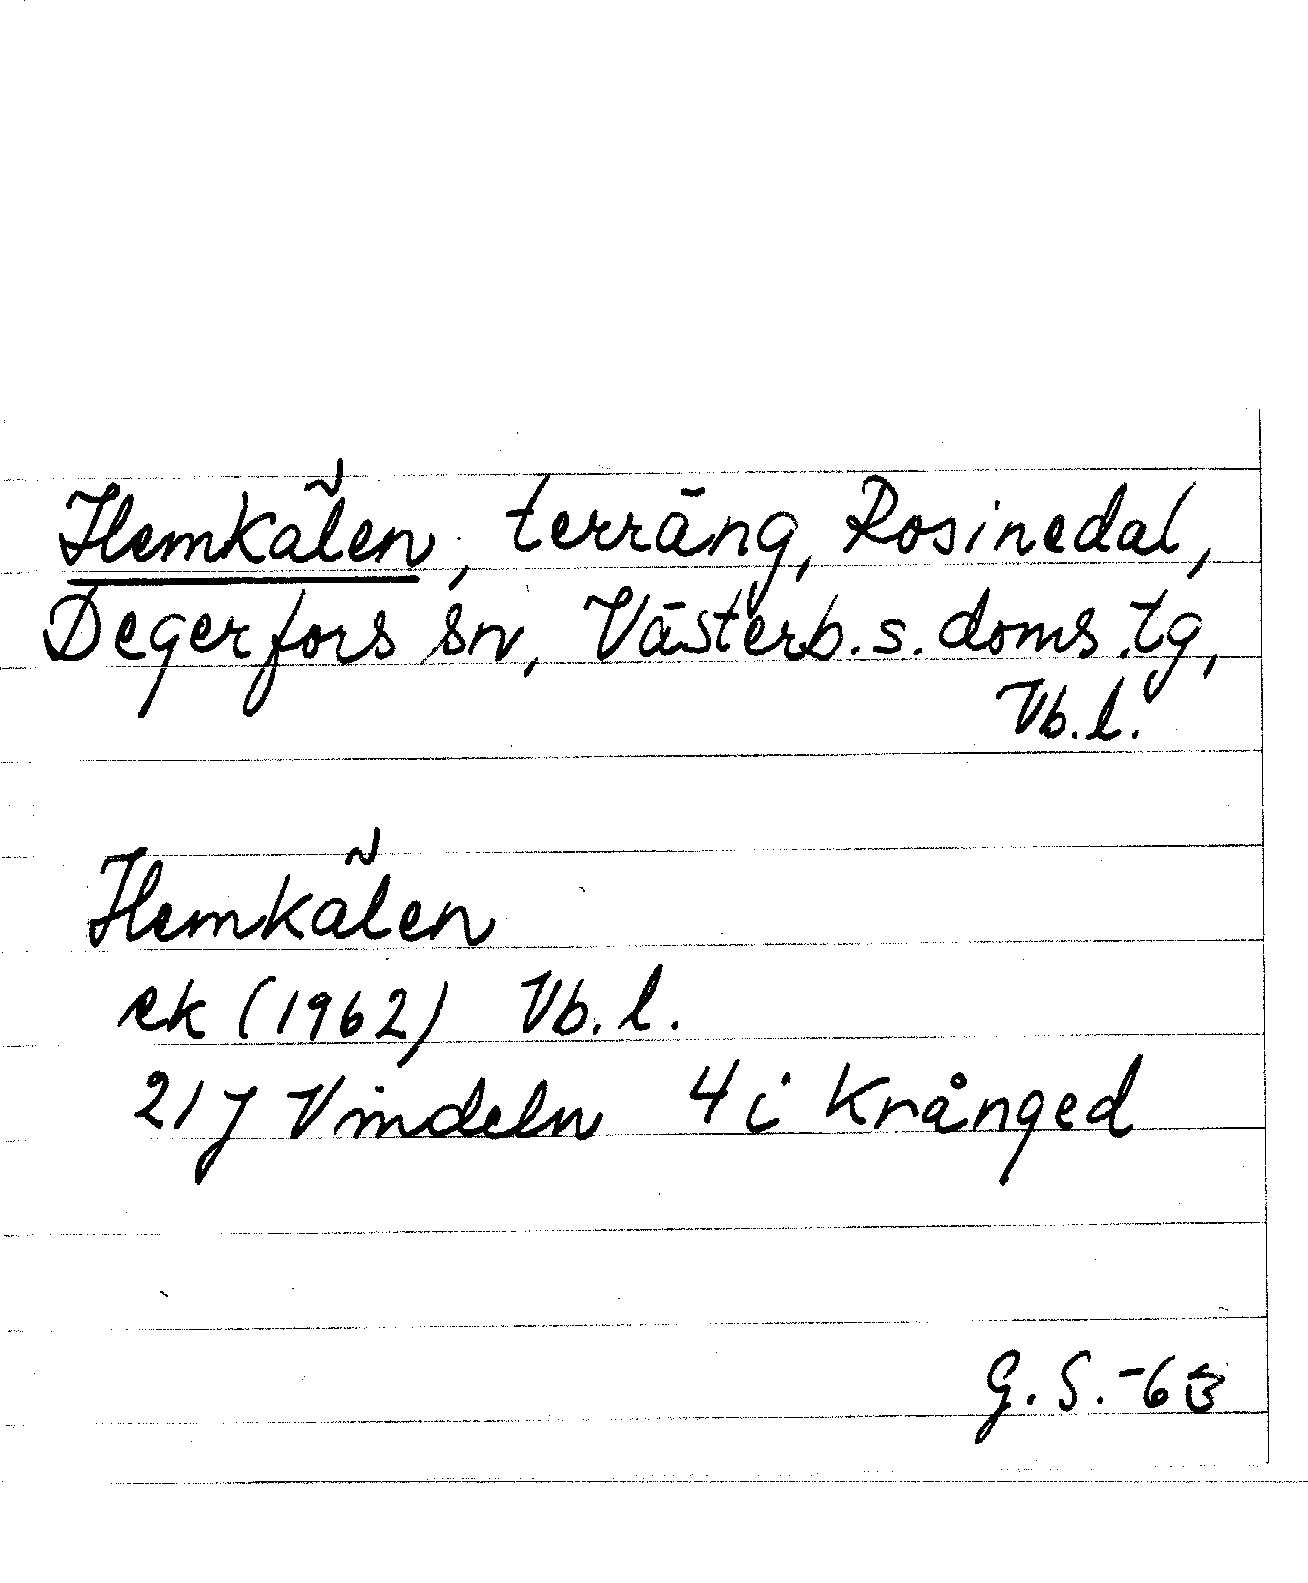 Hemkälen, terräng, Rosinedal,
Degerfors sn, Västerb. s. doms. tg,
Vb. l.
Hemkälen
ek (1962) Vb. l.
21J Vindeln 4i Krånged
G. S. -63